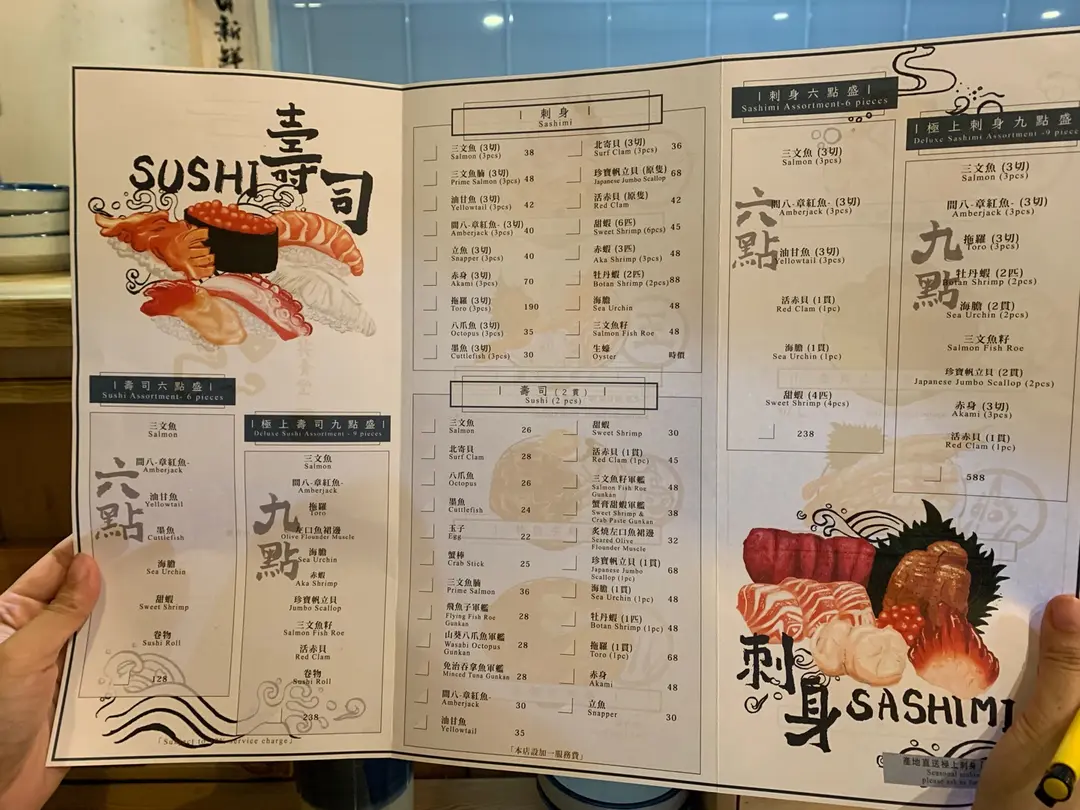 新鮮
SUSHI 壽司
壽司六點盛
Sushi Assortment- 6 pieces
三文魚
Salmon
間八-章紅魚-
Amberjack
油甘魚
Yellowtail
墨魚
Cuttlefish
海膽
Sea Urchin
甜蝦
Sweet Shrimp
卷物
Sushi Roll
128
六點
極上壽司九點盛
Deluxe Sushi Assortment - 9 pieces
三文魚
Salmon
間八-章紅魚-
Amberjack
拖羅
Toro
左口魚裙邊
Olive Flounder Muscle
海膽
Sea Urchin
赤蝦
Aka Shrimp
珍寶帆立貝
Jumbo Scallop
三文魚籽
Salmon Fish Roe
活赤貝
Red Clam
卷物
Sushi Roll
238
九點
service charge
刺身
Sashimi
三文魚 (3切)
Salmon (3pcs) 38
三文魚腩 (3切)
Prime Salmon (3pcs) 48
油甘魚 (3切)
Yellowtail (3pcs) 42
間八-章紅魚- (3切)
Amberjack (3pcs) 40
立魚 (3切)
Snapper (3pcs) 40
赤身 (3切)
Akami (3pcs) 70
拖羅 (3切)
Toro (3pcs) 190
八爪魚 (3切)
Octopus (3pcs) 35
墨魚 (3切)
Cuttlefish (3pcs) 30
北寄貝 (3切)
Surf Clam (3pcs) 36
珍寶帆立貝 (原隻)
Japanese Jumbo Scallop 68
活赤貝 (原隻)
Red Clam 42
甜蝦 (6匹)
Sweet Shrimp (6pcs) 45
赤蝦 (3匹)
Aka Shrimp (3pcs) 48
牡丹蝦 (2匹)
Botan Shrimp (2pcs) 88
海膽
Sea Urchin 48
三文魚籽
Salmon Fish Roe 48
生蠔
Oyster 時價
壽司 (2貫)
Sushi (2 pcs)
三文魚
Salmon 26
北寄貝
Surf Clam 28
八爪魚
Octopus 26
墨魚
Cuttlefish 24
玉子
Egg 22
蟹棒
Crab Stick 25
三文魚腩
Prime Salmon 36
飛魚子軍艦
Flying Fish Roe
Gunkan 28
山葵八爪魚軍艦
Wasabi Octopus
Gunkan 28
免治吞拿魚軍艦
Minced Tuna Gunkan 28
間八-章紅魚-
Amberjack 30
油甘魚
Yellowtail 35
甜蝦
Sweet Shrimp 30
活赤貝 (1貫)
Red Clam (1pc) 45
三文魚籽軍艦
Salmon Fish Roe
Gunkan 48
蟹膏甜蝦軍艦
Sweet Shrimp &
Crab Paste Gunkan 38
炙燒左口魚裙邊
Seared Olive
Flounder Muscle 32
珍寶帆立貝 (1貫)
Japanese Jumbo
Scallop (1pc) 68
海膽 (1貫)
Sea Urchin (1pc) 48
牡丹蝦 (1匹)
Botan Shrimp (1pc) 48
拖羅 (1貫)
Toro (1pc) 68
赤身
Akami 48
立魚
Snapper 30
「本店設加一服務費」
刺身六點盛
Sashimi Assortment-6 pieces
三文魚 (3切)
Salmon (3pcs)
間八-章紅魚- (3切)
Amberjack (3pcs)
油甘魚 (3切)
Yellowtail (3pcs)
活赤貝 (1貫)
Red Clam (1pc)
海膽 (1貫)
Sea Urchin (1pc)
甜蝦 (4匹)
Sweet Shrimp (4pcs)
238
六點
極上刺身九點盛
Deluxe Sashimi Assortment -9 piece
三文魚 (3切)
Salmon (3pcs)
間八-章紅魚- (3切)
Amberjack (3pcs)
拖羅 (3切)
Toro (3pcs)
牡丹蝦 (2匹)
Botan Shrimp (2pcs)
海膽 (2貫)
Sea Urchin (2pcs)
三文魚籽
Salmon Fish Roe
珍寶帆立貝 (2貫)
Japanese Jumbo Scallop (2pcs)
赤身 (3切)
Akami (3pcs)
活赤貝 (1貫)
Red Clam (1pc)
588
九點
刺身 SASHIMI
產地直送極上刺身
Seasonal
please ask